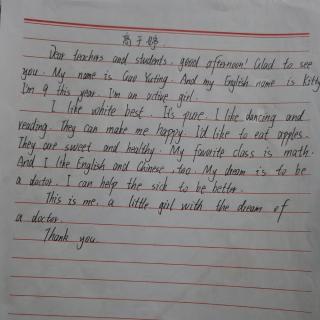 高子婷
Dear teachers and students, good afternoon! Glad to see
you. My name is Gao Yuting. And my English name is Kitty
I'm 9 this year. I'm an active girl.
I like white best. It's pure. I like dancing and
reading. They can make me happy. I'd like to eat apples.
They are sweet and healthy. My favorite class is math.
And I like English and Chinese, too. My dream is to be
a doctor. I can help the sick to be better.
This is me, a little girl with the dream of
a doctor.
Thank you.